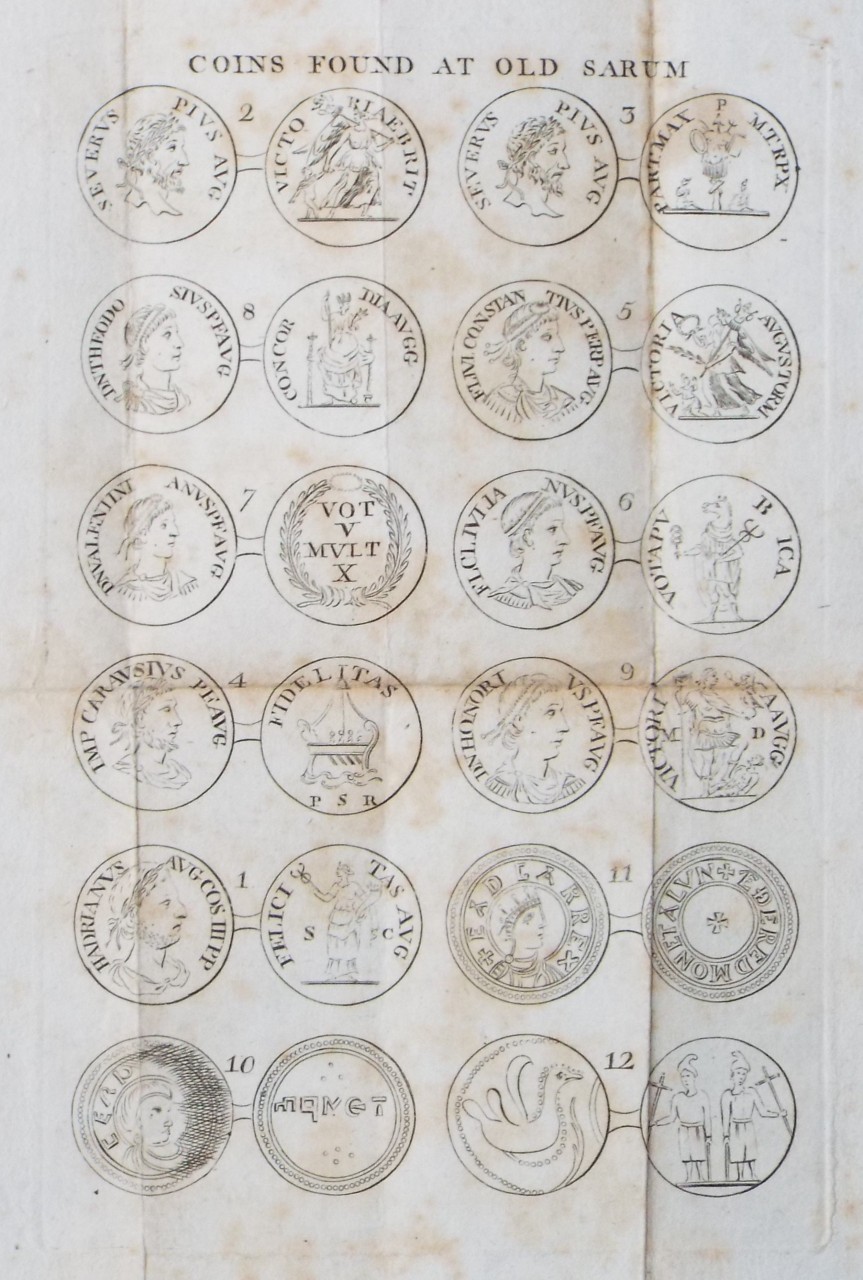 COINS FOUND AT OLD SARUM
SEVERVS PIVS AVG
2
VICTO RIAE BRIT
SEVERVS PIVS AVG
3
PART MAX P M TR P X
DN THEODO SIVS PF AVG
8
CONCOR DIA AVGG
FL IVL CONSTAN TIVS PERP AVG
5
VICTORIA AVGVSTORVM
DN VALENTINI ANVS PF AVG
7
VOT
V
MVLT
X
FL CL IVLIA NVS PF AVG
6
VOTA PV B ICA
IMP CARAVSIVS PF AVG
4
FIDELITAS
P S R
DN HONORI VS PF AVG
9
VICTORI A AVGG
M D
HADRIANVS AVG COS III PP
1
FELICI TAS AVG
S C
+EADGARREX
11
+EÐEREDMONETALVN
EAD
10
12